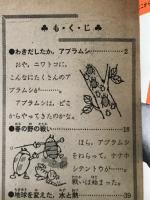 も・く・じ
●わきだしたか、アブラムシ……2
おや、ニワトコに、
こんなにたくさんのア
ブラムシが……。
アブラムシは、どこ
からやってきたのかな。
●春の野の戦い……18
ほら、アブラムシ
をねらって、ナナホ
シテントウが……。
戦いは始まった。
●地球を変えた、水と熱……39